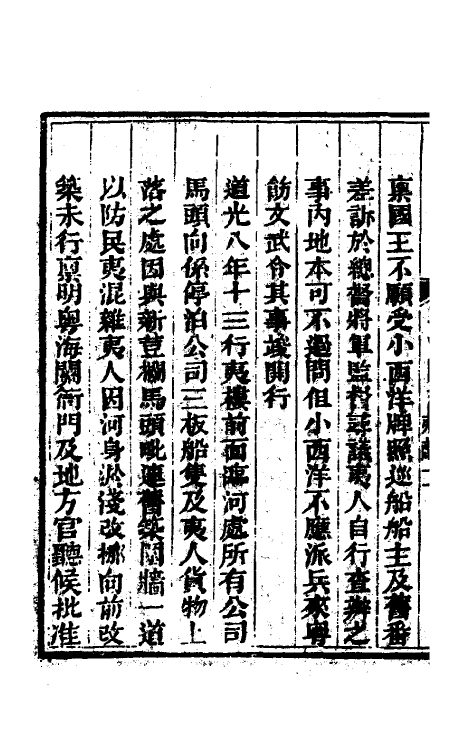 稟國王不願受小西洋牌縣巡船船主及舊番
差訴於總督將軍監督註議夷人自行查辦之
事內地本可不過問但小西洋不應派兵來粵
飭文武令其事竣開行
道光八年十三行夷樓前面臨河處所有公司
馬頭向係停泊公司三板船隻及夷人貨物上
落之處因與新荳欄馬頭毗連舊築閘牆一道
以防民夷混雜夷人因河身淤淺改挪向前改
築未行稟明粵海關衙門及地方官聽候批准